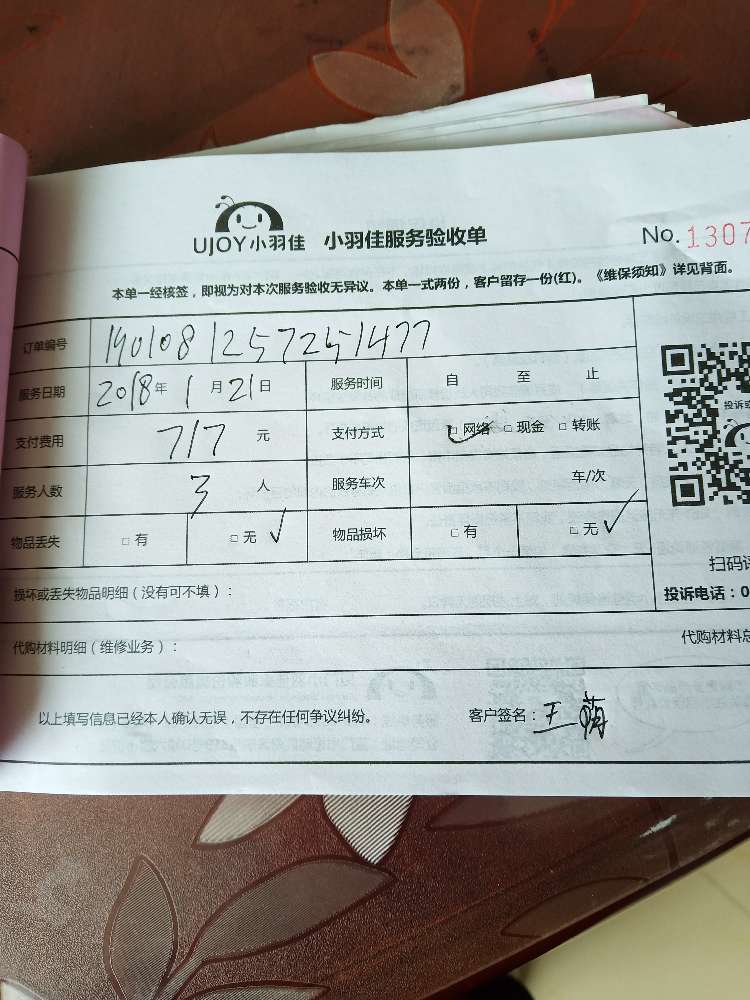 UJOY小羽佳 小羽佳服务验收单 No. 1307
本单一经核签，即视为对本次服务验收无异议。本单一式两份，客户留存一份(红)。《维保须知》详见背面。
订单编号 1901081257251477
服务日期 2018年 1月21日 服务时间 自 至 止
支付费用 717 元 支付方式 □网络 □现金 □转账
服务人数 3 人 服务车次 车/次
物品丢失 □有 □无 √ 物品损坏 □有 □无 √
扫码
损坏或丢失物品明细（没有可不填）： 投诉电话：0
代购材料明细（维修业务）： 代购材料总
以上填写信息已经本人确认无误，不存在任何争议纠纷。 客户签名：王